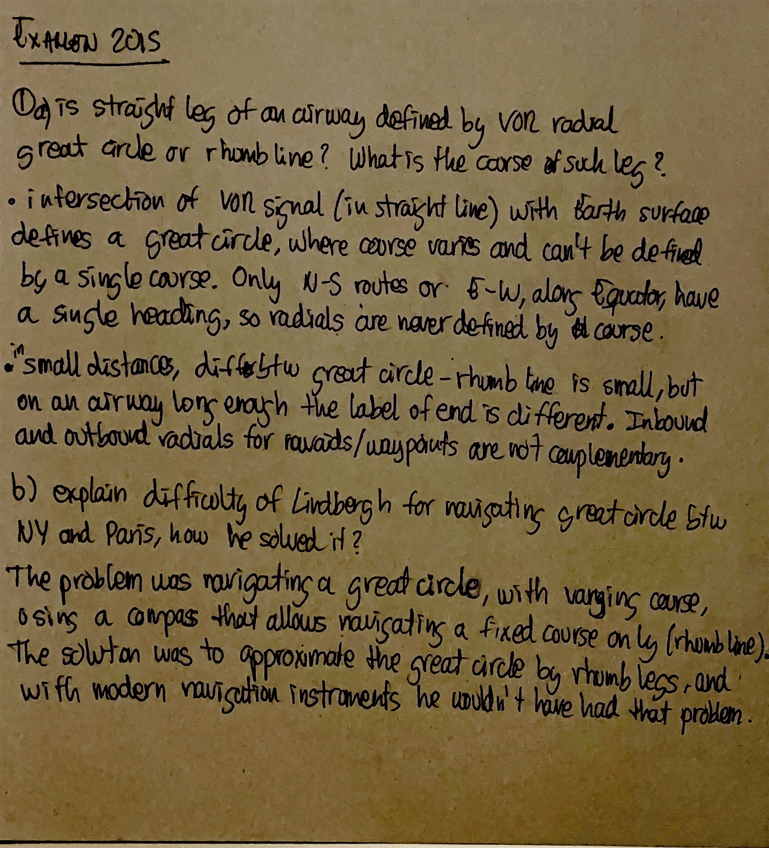 EXAMEN 2015
① a) is straight leg of an airway defined by VOR radial
great circle or rhumb line? What is the course of such leg?
• intersection of VOR signal (in straight line) with Earth surface
defines a great circle, where course varies and can't be defined
by a single course. Only N-S routes or E-W, along Equator, have
a single heading, so radials are never defined by course.
• in small distances, diff btw great circle - rhumb line is small, but
on an airway long enough the label of end is different. Inbound
and outbound radials for navaids/waypoints are not complementary.
b) explain difficulty of Lindbergh for navigating great circle btw
NY and Paris, how he solved it?
The problem was navigating a great circle, with varying course,
using a compas that allows navigating a fixed course only (rhumb line).
The solution was to approximate the great circle by rhumb legs, and
with modern navigation instruments he wouldn't have had that problem.